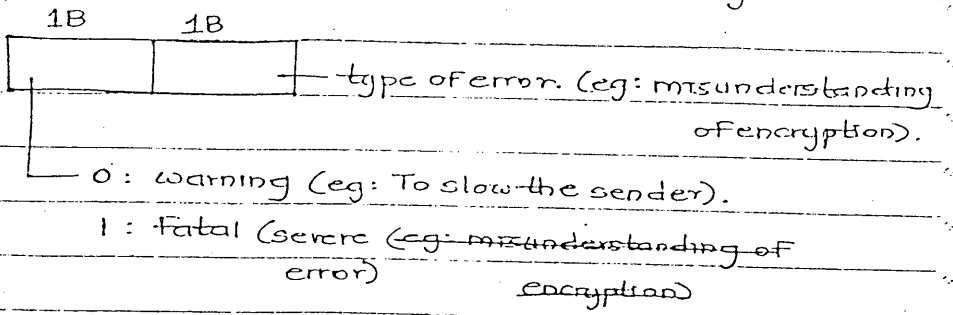 1B 1B
type of error. (eg: misunderstanding
of encryption).
0 : warning (eg: To slow the sender).
1 : Fatal (severe (eg: misunderstanding of
error) encryption)